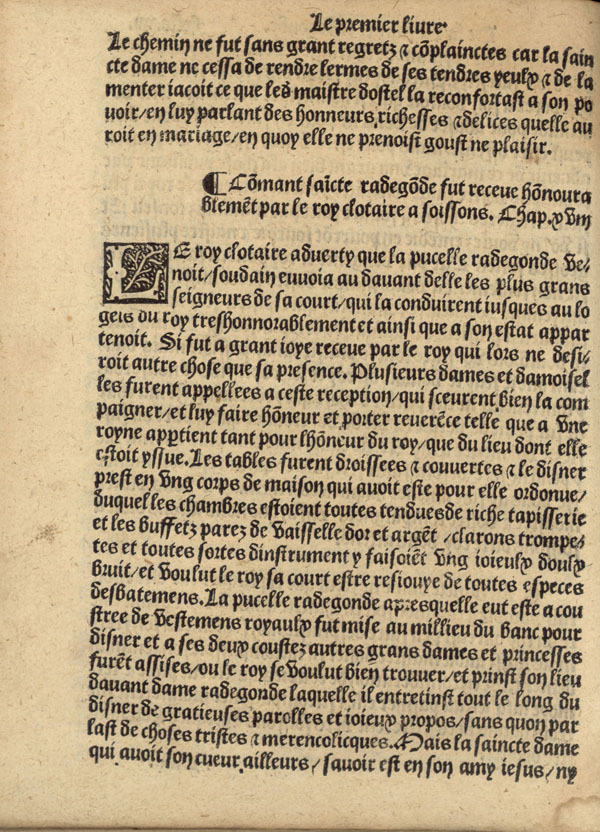 Le premier liure
Le chemin ne fut sans grant regretz ⁊ cõplainctes car la sain
cte dame ne cessa de rendre lermes de ses tendres yeulx ⁊ de la
menter iacoit ce que les maistre dostel la reconfortast a son po
uoir/en luy parlant des honneurs,richesses ⁊ delices quelle au
roit en mariage/en quoy elle ne prenoist goust ne plaisir.
¶ Cõmant saĩcte radegõde fut receue hõnoura
blemẽt par le roy clotaire a soissons. Chap.xviij
LE roy clotaire aduerty que la pucelle radegonde ve-
noit/soudain enuoia au dauant delle les plus grans
seigneurs de sa court/qui la conduirent iusques au lo
geis du roy treshonnorablement et ainsi que a son estat appar
tenoit. Si fut a grant ioye receue par le roy qui lors ne desi-
roit autre chose que sa presence. Plusieurs dames et damoisel
les furent appellees a ceste reception/qui sceurent bien la com
paigner/et luy faire hõneur et porter reuerẽce telle que a vne
royne apptient tant pour lhõneur du roy/que du lieu dont elle
estoit yssue. Les tables furent droissees ⁊ couuertes ⁊ le disner
prest en vng corps de maison qui auoit este pour elle ordonue/
duquel les chambres estoient toutes tendues de riche tapisserie
et les buffetz parez de vaisselle dor et argẽt /clarons trompe-
tes et toutes sortes dinstrument y faisoiẽt vng ioieulx doulx
bruit/et voulut le roy sa court estre resiouye de toutes especes
desbatemens. La pucelle radegonde apresquelle eut este a cou
stree de vestemens royaulx fut mise au millieu du banc pour
disner et a ses deux coustez autres grans dames et princesses
furẽt assises/ou le roy se voulut bien trouuer/et prinst son lieu
dauant dame radegonde laquelle il entretinst tout le long du
disner de gratieuses parolles et ioieux propos/sans quon par
last de choses tristes ⁊ merencolicques. Mais la saincte dame
qui auoit son cueur ailleurs/ sauoir est en son amy iesus/ny